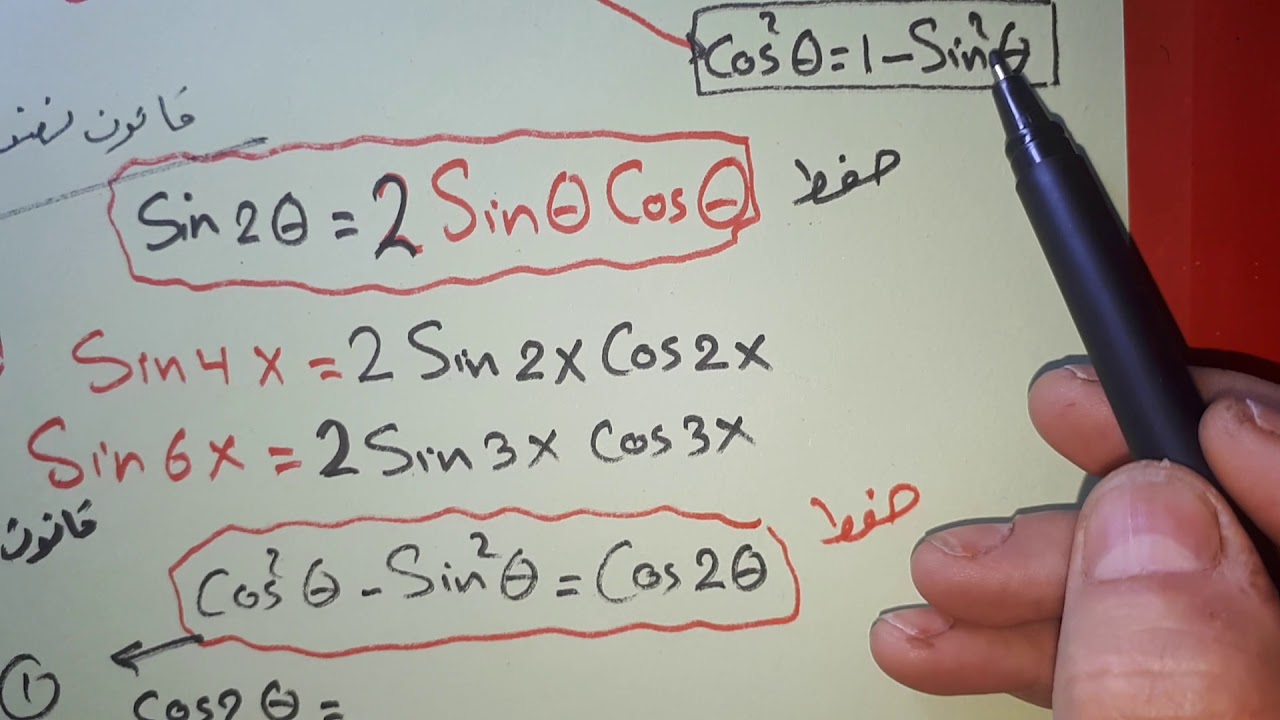 Cos²θ = 1 - Sin²θ
قانون
Sin2θ = 2 Sinθ Cosθ حفظ
Sin4x = 2 Sin2x Cos2x
Sin6x = 2 Sin3x Cos3x
قانون
Cos²θ - Sin²θ = Cos2θ حفظ
① Cos2θ =